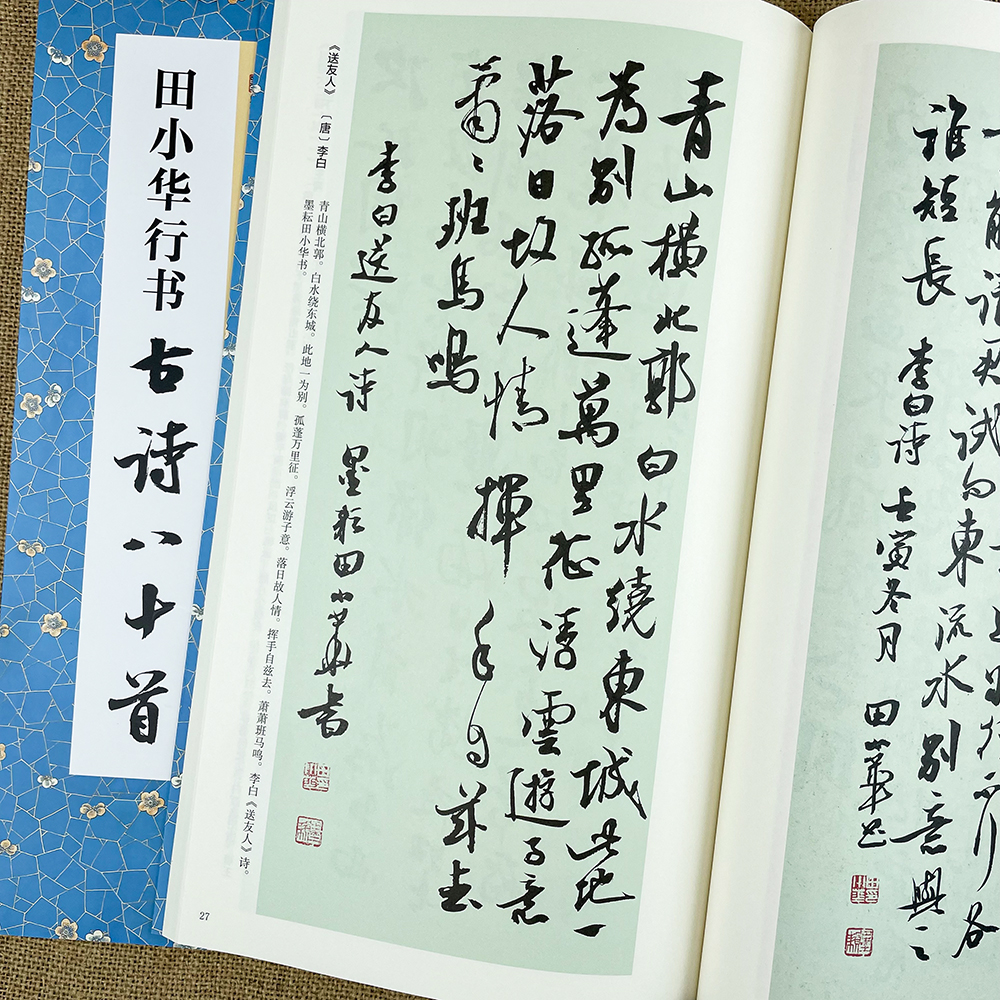 田小华行书古诗八十首
青山橫北郭白水繞東城此地一
為別孤蓬萬里征浮雲遊子意
落日故人情揮手自茲去
蕭〻班馬鳴
李白送友人诗 墨耘田小華書
《送友人》 〔唐〕李白
青山横北郭。白水绕东城。此地一为别。孤蓬万里征。浮云游子意。落日故人情。挥手自兹去。萧萧班马鸣。李白《送友人》诗。
墨耘田小华书。
27
試问東流水別意與之
誰短長 李白诗 壬寅冬月 田小華书